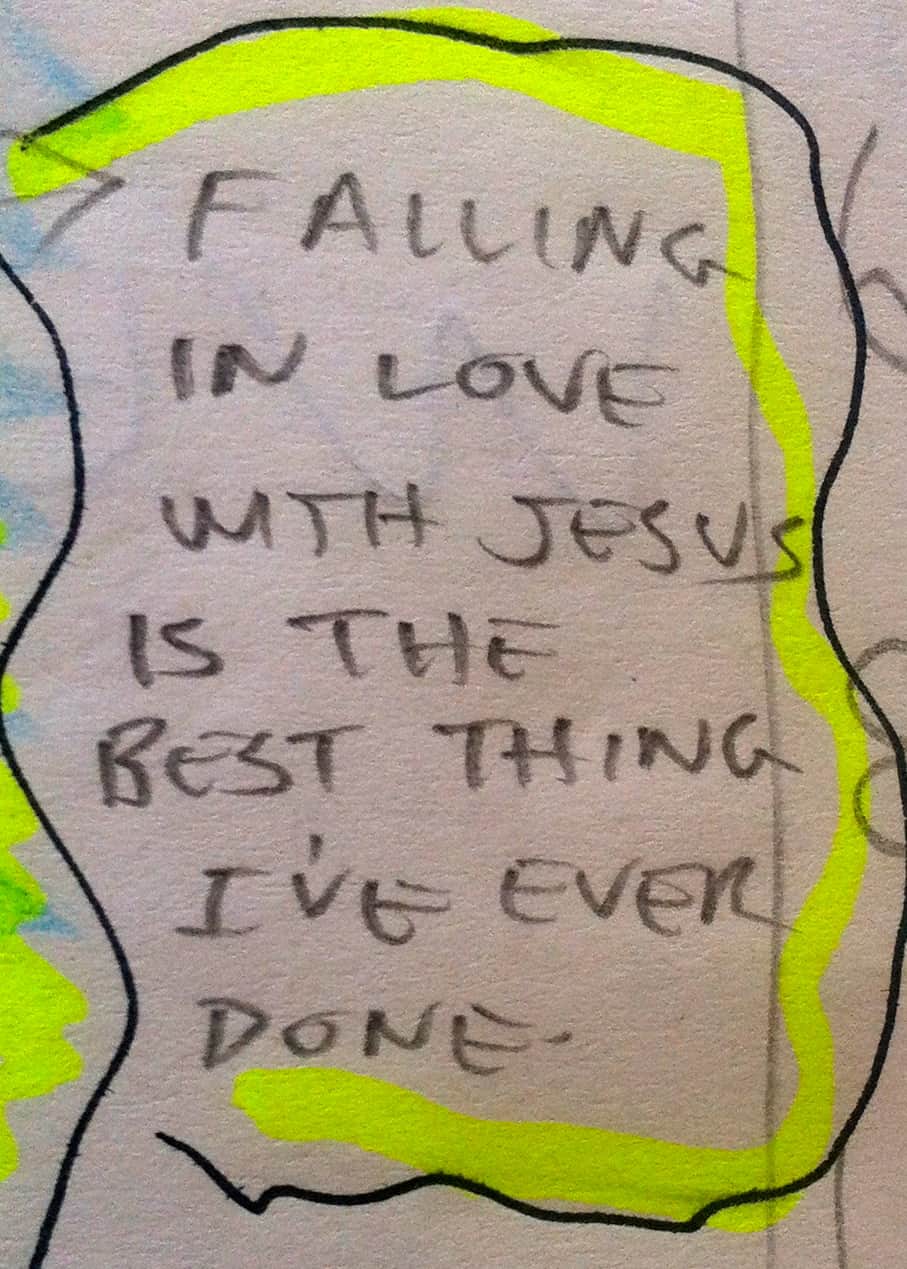 FALLING
IN LOVE
WITH JESUS
IS THE
BEST THING
I'VE EVER
DONE.